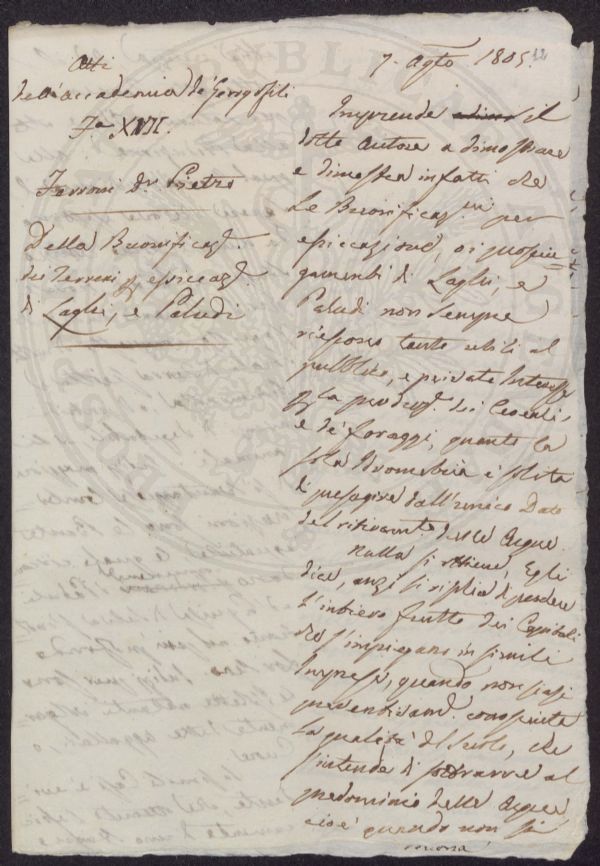 Atti
dell'accademia de' Georgofili
7. Agto 1805.
12
Ferroni Dr. Pietro
Della Buonificaz.
dei Terreni p. essiccaz.
di Laghi, e Paludi
Imprende il
dotto Autore a dimostrare
e dimostra infatti che
le Buonificaz.ni per
essiccazione, o i prosciu-
gamenti di Laghi, e
Paludi non sempre
riescono tanto utili al
pubblico, e privato Interesse
p. la produz. dei Cereali,
e de' foraggi, quanto la
sola Idrometria è solita
di presagire dall'unico Dato
del ritiramento delle Acque.
Nulla si ottiene, Egli
dice, anzi si riplica di perdere
l'intiero frutto dei Capitali
che s'impiegano in simili
Imprese, quando non siasi
preventivam. conosciuta
la qualità del Suolo, che
s'intende di sottrarre al
predominio delle Acque,
cioè quando non si